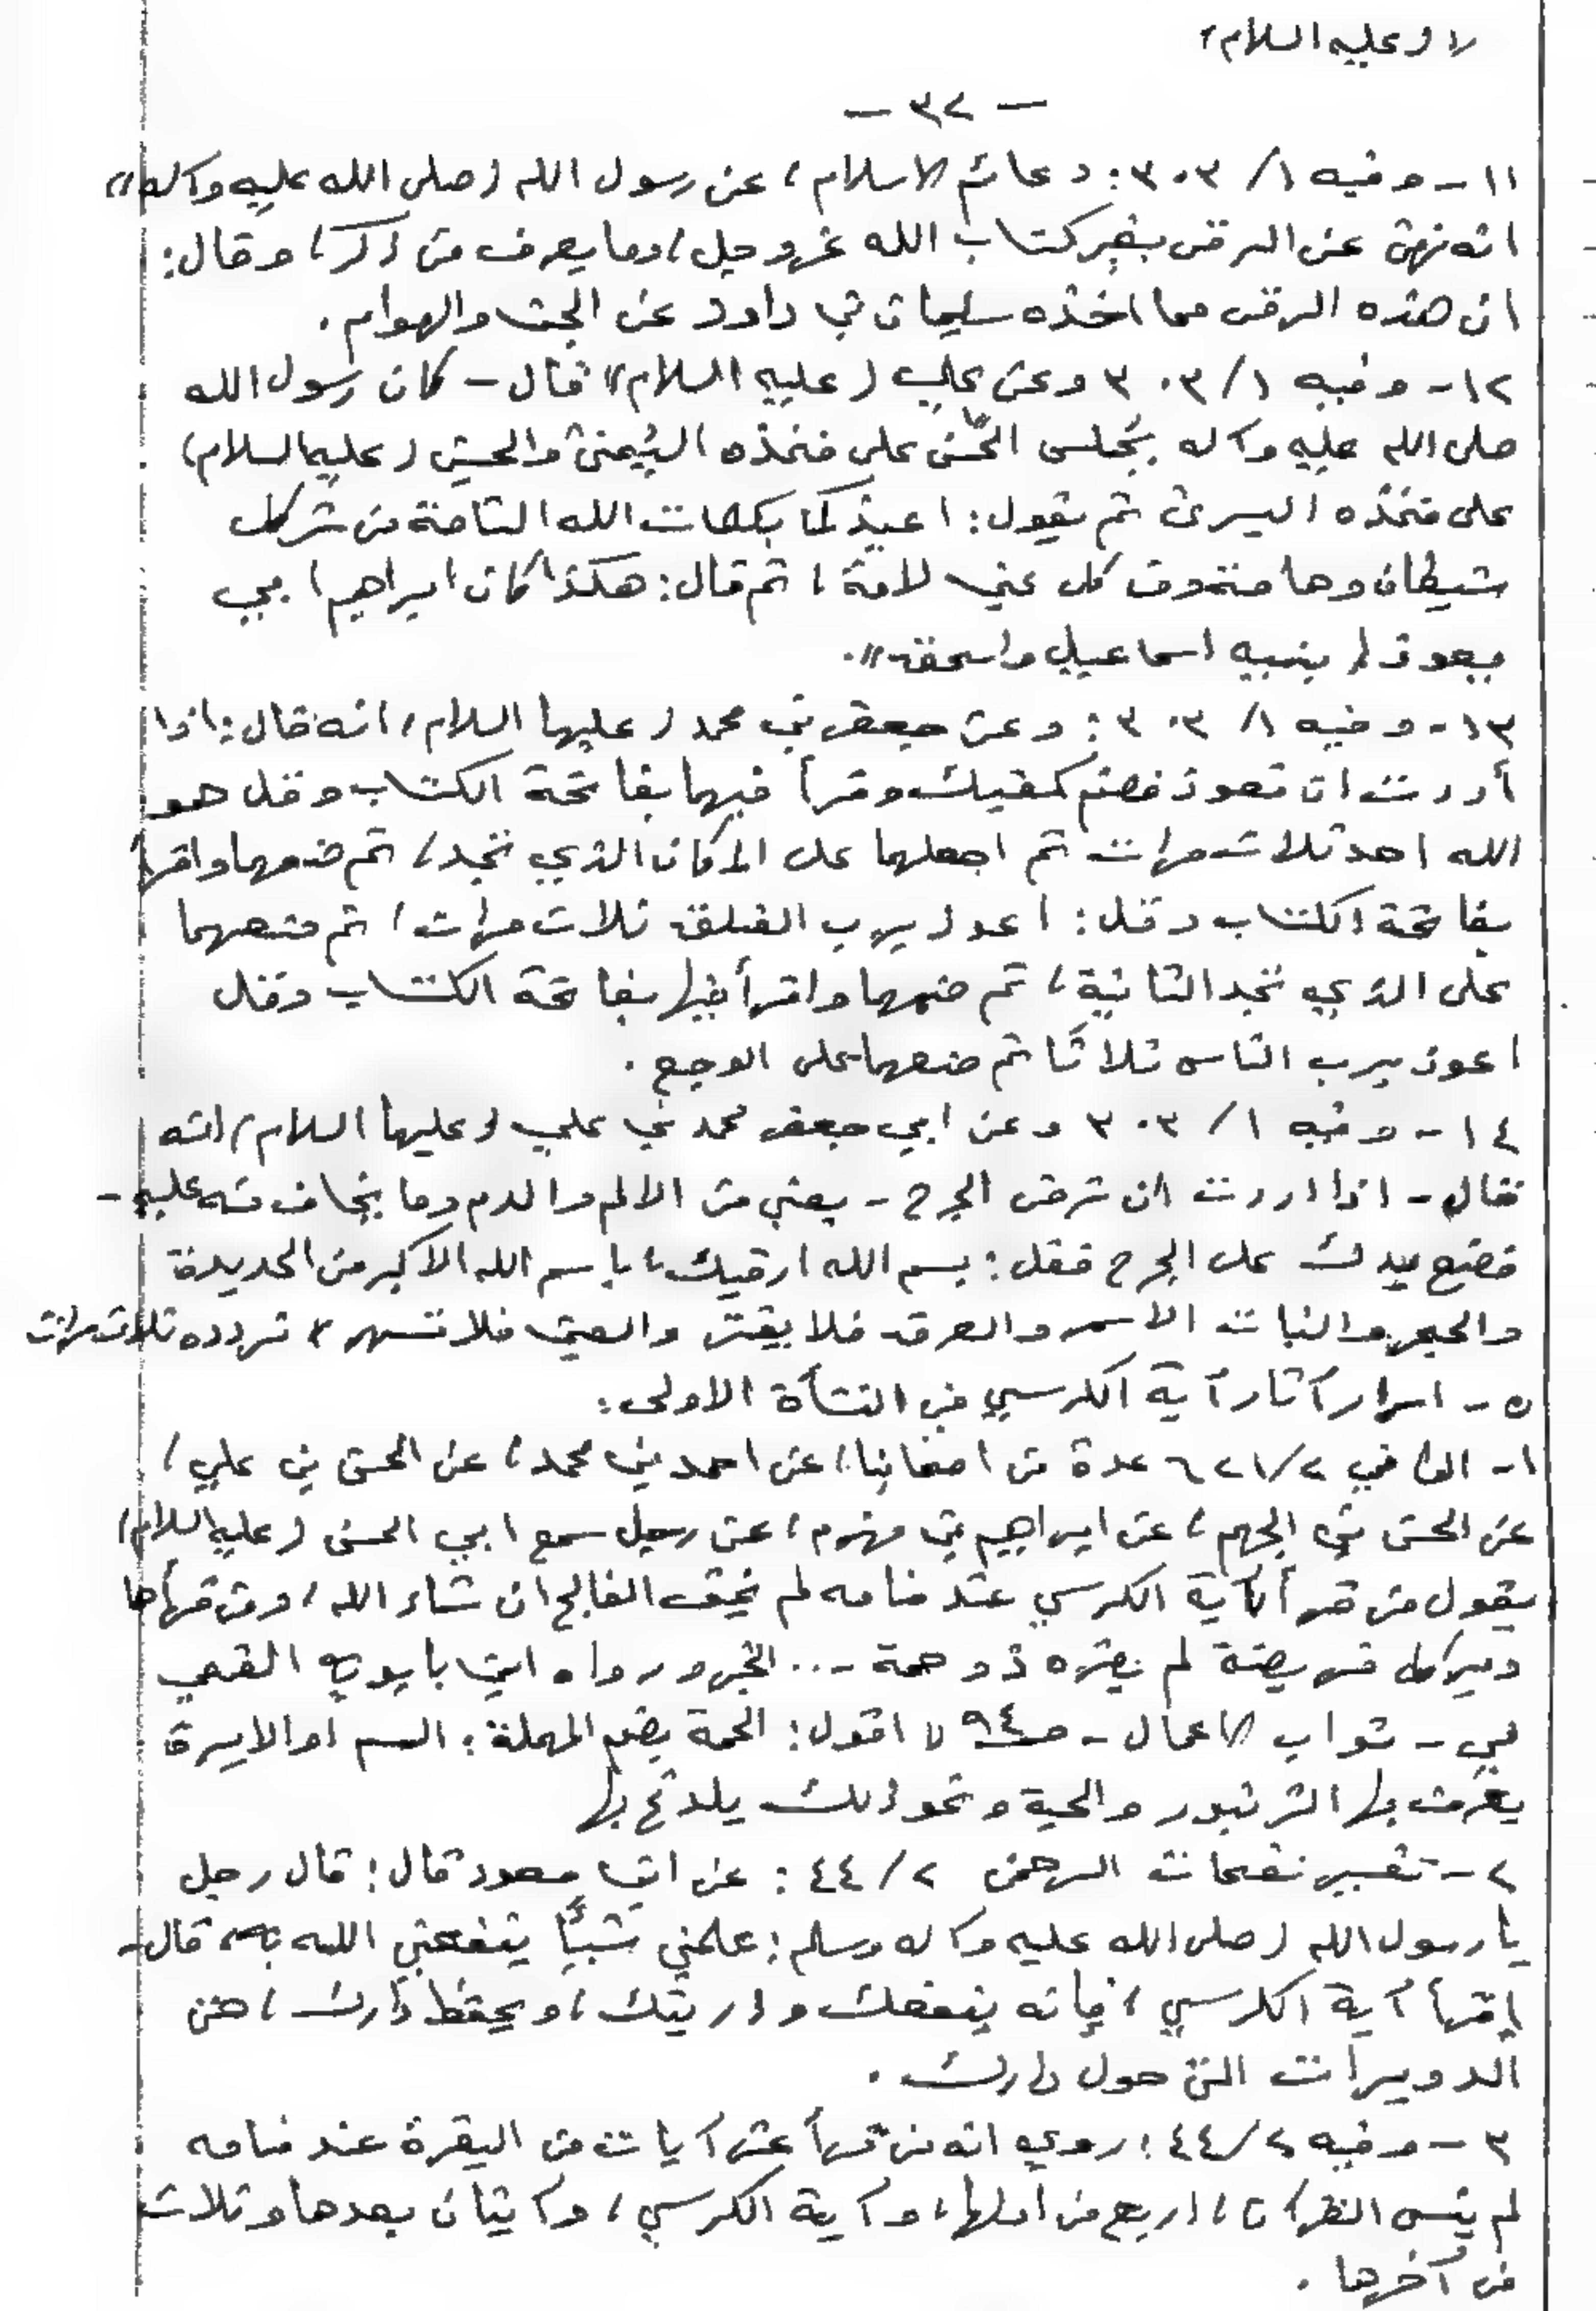 لا (عليه السلام)
- ٣٢ -
١١- وفيه ١/ ٣٠٣: دعائم الاسلام، عن رسول الله (صلى الله عليه وآله)
انه نهى عن الرقى بغير كتاب الله عزوجل، وما يعرف من ذكره، وقال:
ان هذه الرقى مما اخذه سليمان بن داود عن الجن والهوام.
١٢- وفيه ١/ ٣٠٣ وعن علي (عليه السلام) قال - كان رسول الله
صلى الله عليه وآله يجلس الحسن على فخذه اليمنى والحسين (عليهما السلام)
على فخذه اليسرى ثم يقول: اعيذكما بكلمات الله التامة من شر كل
شيطان وهامة ومن كل عين لامة، ثم قال: هكذا كان ابراهيم ابي
يعوذ ابنيه اسماعيل واسحق».
١٣- وفيه ١/ ٣٠٣: وعن جعفر بن محمد (عليهما السلام) انه قال: اذا
أردت ان تعوذ فضم كفيك وقرأ فيهما بفاتحة الكتاب وقل هو
الله احد ثلاث مرات ثم اجعلهما على المكان الذي تجد، ثم ضمهما واقرأ
بفاتحة الكتاب وقل: اعوذ برب الفلق ثلاث مرات، ثم ضعهما
على الذي تجد الثانية، ثم ضمهما واقرأ فيها بفاتحة الكتاب وقل
اعوذ برب الناس ثلاثا ثم ضعهما على الوجع.
١٤- وفيه ١/ ٣٠٣ وعن ابي جعفر محمد بن علي (عليهما السلام) انه
قال - اذا اردت ان ترقى الجرح - يعني من الالم والدم وما يخاف منه عليه -
فضع يدك على الجرح فقل: بسم الله ارقيك، باسم الله الاكبر من الحديدة
والحجر والنبات الاسمر والعرق فلا يفتر والعين فلا تسهر، تردده ثلاث مرات
٥- اسرار آثار آية الكرسي في النشأة الاولى:
١- الكافي ٢/ ٦٢١ عدة من اصحابنا، عن احمد بن محمد، عن الحسن بن علي،
عن الحسن بن الجهم، عن ابراهيم بن مهزم، عن رجل سمع ابي الحسن (عليه السلام)
يقول من قرأ آية الكرسي عند منامه لم يخف الفالج ان شاء الله، ومن قرأها
دبر كل فريضة لم يضره ذو حمة -... الخبر ورواه ابن بابويه القمي
في - ثواب الاعمال - ص٩٤ لا اقول: الحمة بضم المهملة: السم او الابرة
يضرب بها الزنبور والحية ونحو ذلك يلدغ بها
٢- تفسير نفحات الرحمن ٢/ ٤٤: عن ابن مسعود قال: قال رجل
يا رسول الله (صلى الله عليه وآله وسلم: علمني شيئاً ينفعني الله به، قال-
إقرأ آية الكرسي، فإنه ينفعك وذريتك، ويحفظ دارك، حتى
الدويرات التي حول دارك.
٣- وفيه ٢/ ٤٤: روي انه من قرأ عشر آيات من البقرة عند منامه
لم ينس القرآن، اربع من اولها، وآية الكرسي، وآيتان بعدها وثلاث
من آخرها.